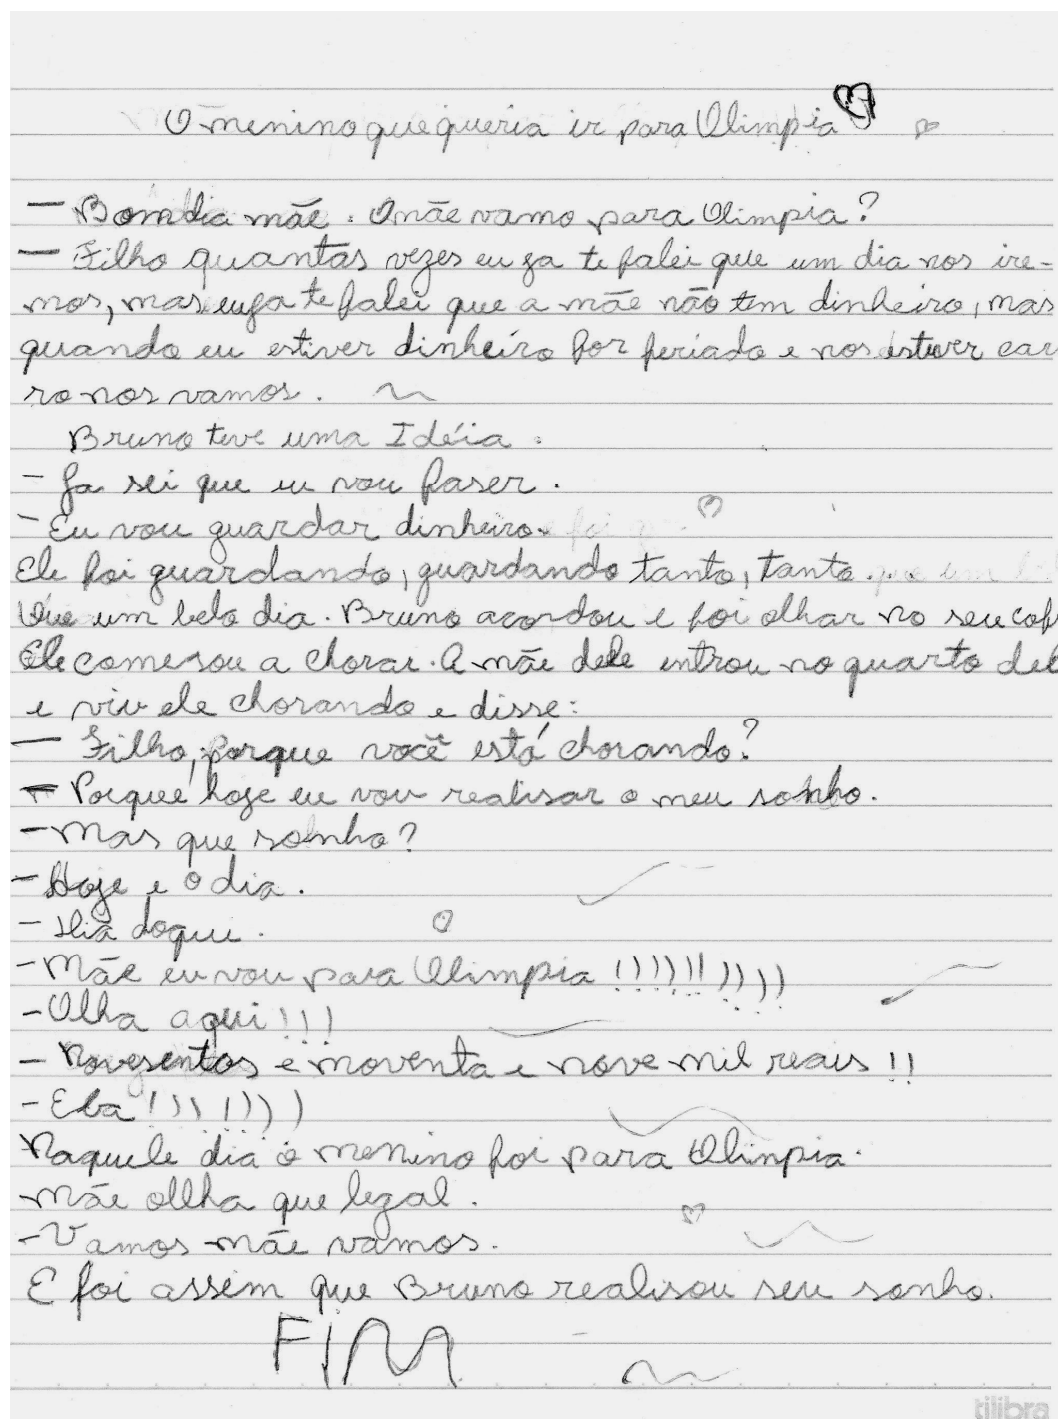 O menino que queria ir para Olimpia
— Bom dia mãe. Ô mãe vamo para Olimpia?
— Filho quantas vezes eu ja te falei que um dia nos ire-
mos, mas eu ja te falei que a mãe não tem dinheiro, mas
quando eu estiver dinheiro for feriado e nos estiver car
ro nos vamos.
Bruno teve uma Idéia.
- Ja sei que eu vou faser.
- Eu vou guardar dinheiro.
Ele foi guardando, guardando tanto, tanto.
Que um belo dia. Bruno acordou e foi olhar no seu cof
Ele comesou a chorar. A mãe dele entrou no quarto del
e viu ele chorando e disse:
— Filho, porque você está chorando?
— Porque hoje eu vou realisar o meu sonho.
- Mas que sonho?
- Hoje e o dia.
- Dia doque.
- Mãe eu vou para Olimpia !!!!!!!!!!
- Olha aqui!!!
- Novesentos e noventa e nove mil reais!!
- Eba!!!!!!!
Naquele dia o menino foi para Olinpia.
Mãe ollha que legal.
- Vamos mãe vamos.
E foi assim que Bruno realisou seu sonho.
FIM
tilibra